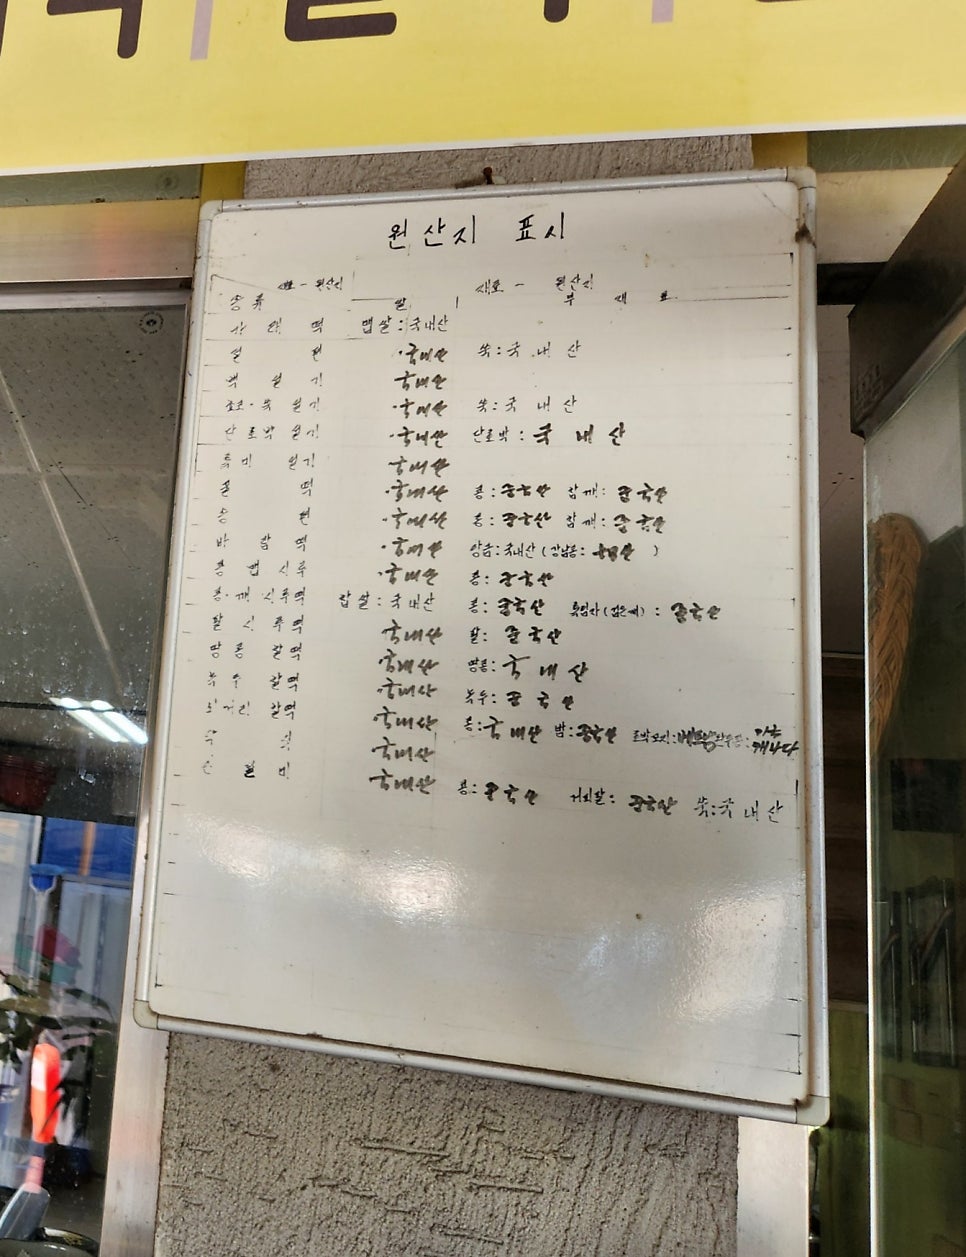 원산지 표시
재료 - 원산지 재료 - 원산지
종류 쌀 부 재 료
가 래 떡 멥쌀 : 국내산
절 편 국내산 쑥 : 국 내 산
백 설 기 국내산
쑥 설기 국내산 쑥 : 국 내 산
단호박 설기 국내산 단호박 : 국 내 산
흑미 설기 국내산
꿀 떡 국내산 콩 : 중국산 참깨 : 중국산
송 편 국내산 콩 : 중국산 참깨 : 중국산
바 람 떡 국내산 앙금 : 국내산 (강낭콩 : )
콩 멥 시루 국내산 콩 : 중국산
콩·깨 시루떡 찹쌀 : 국내산 콩 : 중국산 흑임자 (검은깨) : 중국산
팥 시 루 떡 국내산 팥 : 중국산
땅 콩 찰떡 국내산 땅콩 : 국 내 산
녹 두 찰떡 국내산 녹두 : 중 국 산
찰떡 국내산 콩 : 국내산 밤 : 중국산 호박오가리 : 베트남
국내산
국내산 콩 : 중국산 거피팥 : 중국산 쑥 : 국 내 산